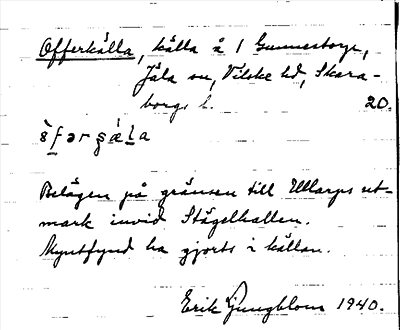 Offerkälla, källa å 1 Gunnestorp,
Jäla sn, Vilske hd, Skara-
borgs l. 20.
Belägen på gränsen till Ullarps ut-
mark invid Stägelhallen.
Myntfynd ha gjorts i källan.
Erik Ljungblom 1940.